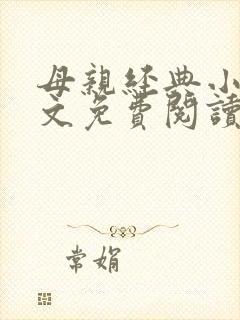 母親經典小
文免費閱讀
常娟